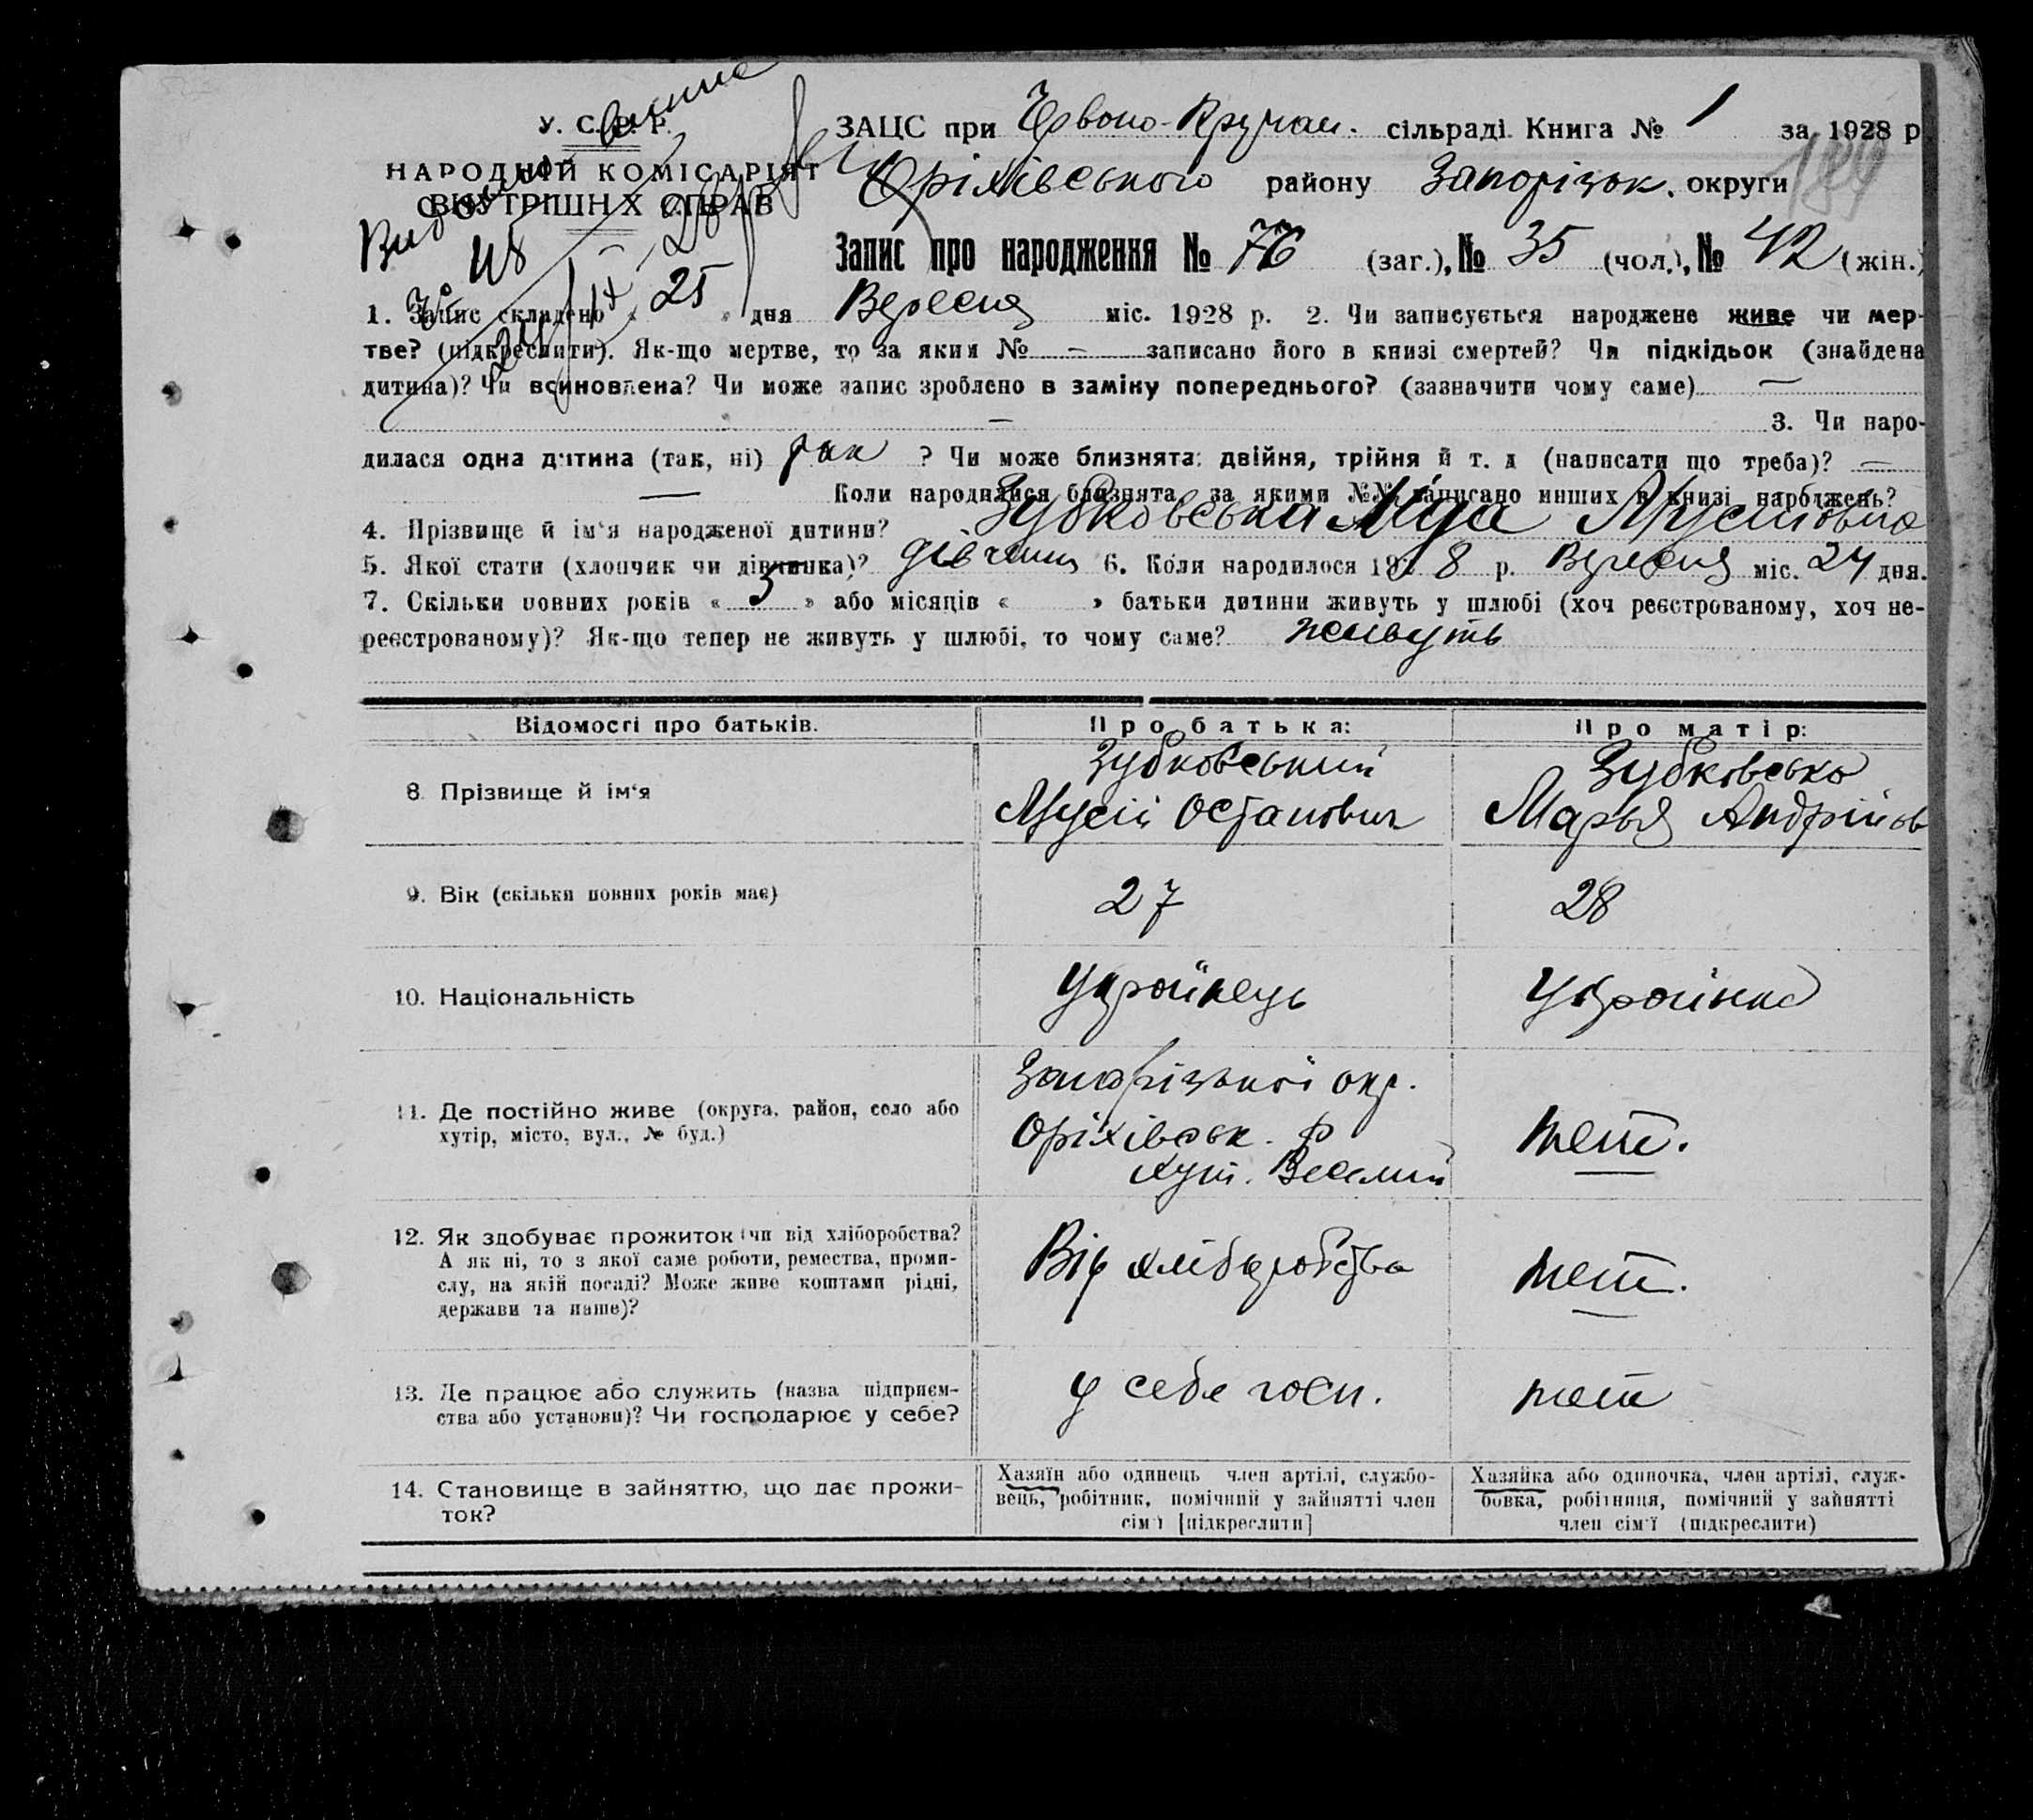 У. С. Р. Р.
НАРОДНІЙ КОМІСАРІЯТ
ВНУТРІШНІХ СПРАВ
№ 48
ЗАЦС при Червоно-Кручан. сільраді Книга № 1 за 1928 р
Оріхівського району Запорізьк. округи
184
Запис про народження № 76 (заг.), № 35 (чол.), № 42 (жін.)
1. Запис складено « 25 » дня Вересня міс. 1928 р. 2. Чи записується народжене живе чи мер-
тве? (підкреслити). Як-що мертве, то за яким № — записано його в книзі смертей? Чи підкідьок (знайдена
дитина)? Чи всиновлена? Чи може запис зроблено в заміну попереднього? (зазначити чому саме) —
— 3. Чи наро-
дилася одна дитина (так, ні) так ? Чи може близнята: двійня, трійня й т. д (написати що треба)? —
— Коли народилися близнята, за якими №№ записано инших в книзі народжень?
4. Прізвище й ім'я народженої дитини? Зубковська Ліда Мусіївна
5. Якої статі (хлопчик чи дівчинка)? дівчина 6. Коли народилося 1928 р. Вересня міс. 24 дня.
7. Скільки повних років « 5 » або місяців « » батьки дитини живуть у шлюбі (хоч реєстрованому, хоч не-
реєстрованому)? Як-що тепер не живуть у шлюбі, то чому саме? живуть
Відомості про батьків.
Про батька:
Про матір:
8. Прізвище й ім'я
Зубковський
Мусій Остапович
Зубковська
Марья Андрійов
9. Вік (скільки повних років має)
27
28
10. Національність
Українець
Українка
11. Де постійно живе (округа, район, село або
хутір, місто, вул., № буд.)
Запорізької окр.
Оріхівськ. р
хут. Веселий
теш.
12. Як здобуває прожиток (чи від хліборобства?
А як ні, то з якої саме роботи, ремества, проми-
слу, на якій посаді? Може живе коштами рідні,
держави та инше)?
Від хліборобства
теш.
13. Де працює або служить (назва підприєм-
ства або установи)? Чи господарює у себе?
у себе госп.
теш
14. Становище в зайняттю, що дає прожи-
ток?
Хазяїн або одинець член артілі, службо-
вець, робітник, помічний у зайнятті член
сім'ї [підкреслити]
Хазяйка або одиночка, член артілі, служ-
бовка, робітниця, помічний у зайнятті
член сім'ї (підкреслити)